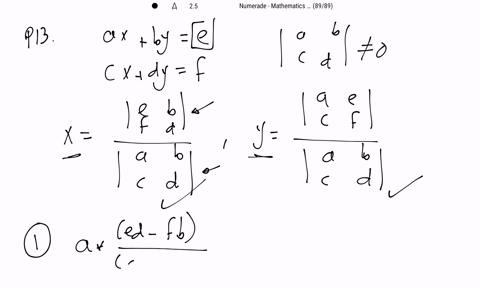 2.5
Numerade - Mathematics ... (89/89)
P13.
ax + by = e
cx + dy = f
| a b |
| c d | ≠ 0
x = | e b |
| f d |
| a b |
| c d | ,
y = | a e |
| c f |
| a b |
| c d |
① a * (ed - fb)
(